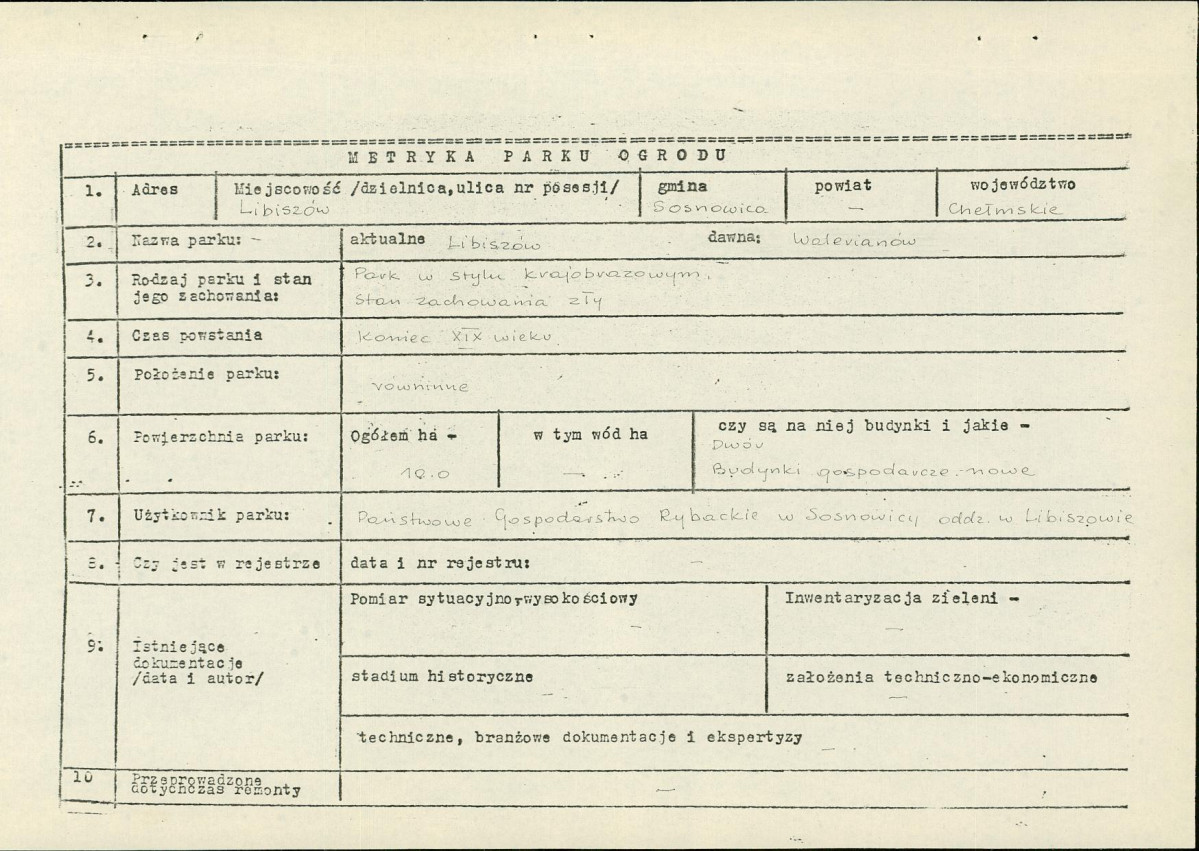 METRYKA PARKU OGRODU
1. Adres Miejscowość /dzielnica,ulica nr posesji/ gmina powiat województwo
Libiszów Sosnowica — Chełmskie
2. Nazwa parku: — aktualne Libiszów dawna: Walerianów
3. Rodzaj parku i stan jego zachowania:
Park w stylu krajobrazowym.
Stan zachowania zły
4. Czas powstania Koniec XIX wieku
5. Położenie parku: równinne
6. Powierzchnia parku: Ogółem ha - w tym wód ha czy są na niej budynki i jakie -
Dwór
10.0 — Budynki gospodarcze-nowe
7. Użytkownik parku: Państwowe Gospodarstwo Rybackie w Sosnowicy oddz. w Libiszowie
8. Czy jest w rejestrze data i nr rejestru: —
9. Istniejące
dokumentacje
/data i autor/
Pomiar sytuacyjno-wysokościowy — Inwentaryzacja zieleni - —
stadium historyczne — założenia techniczno-ekonomiczne —
techniczne, branżowe dokumentacje i ekspertyzy —
10 Przeprowadzone
dotychczas remonty —